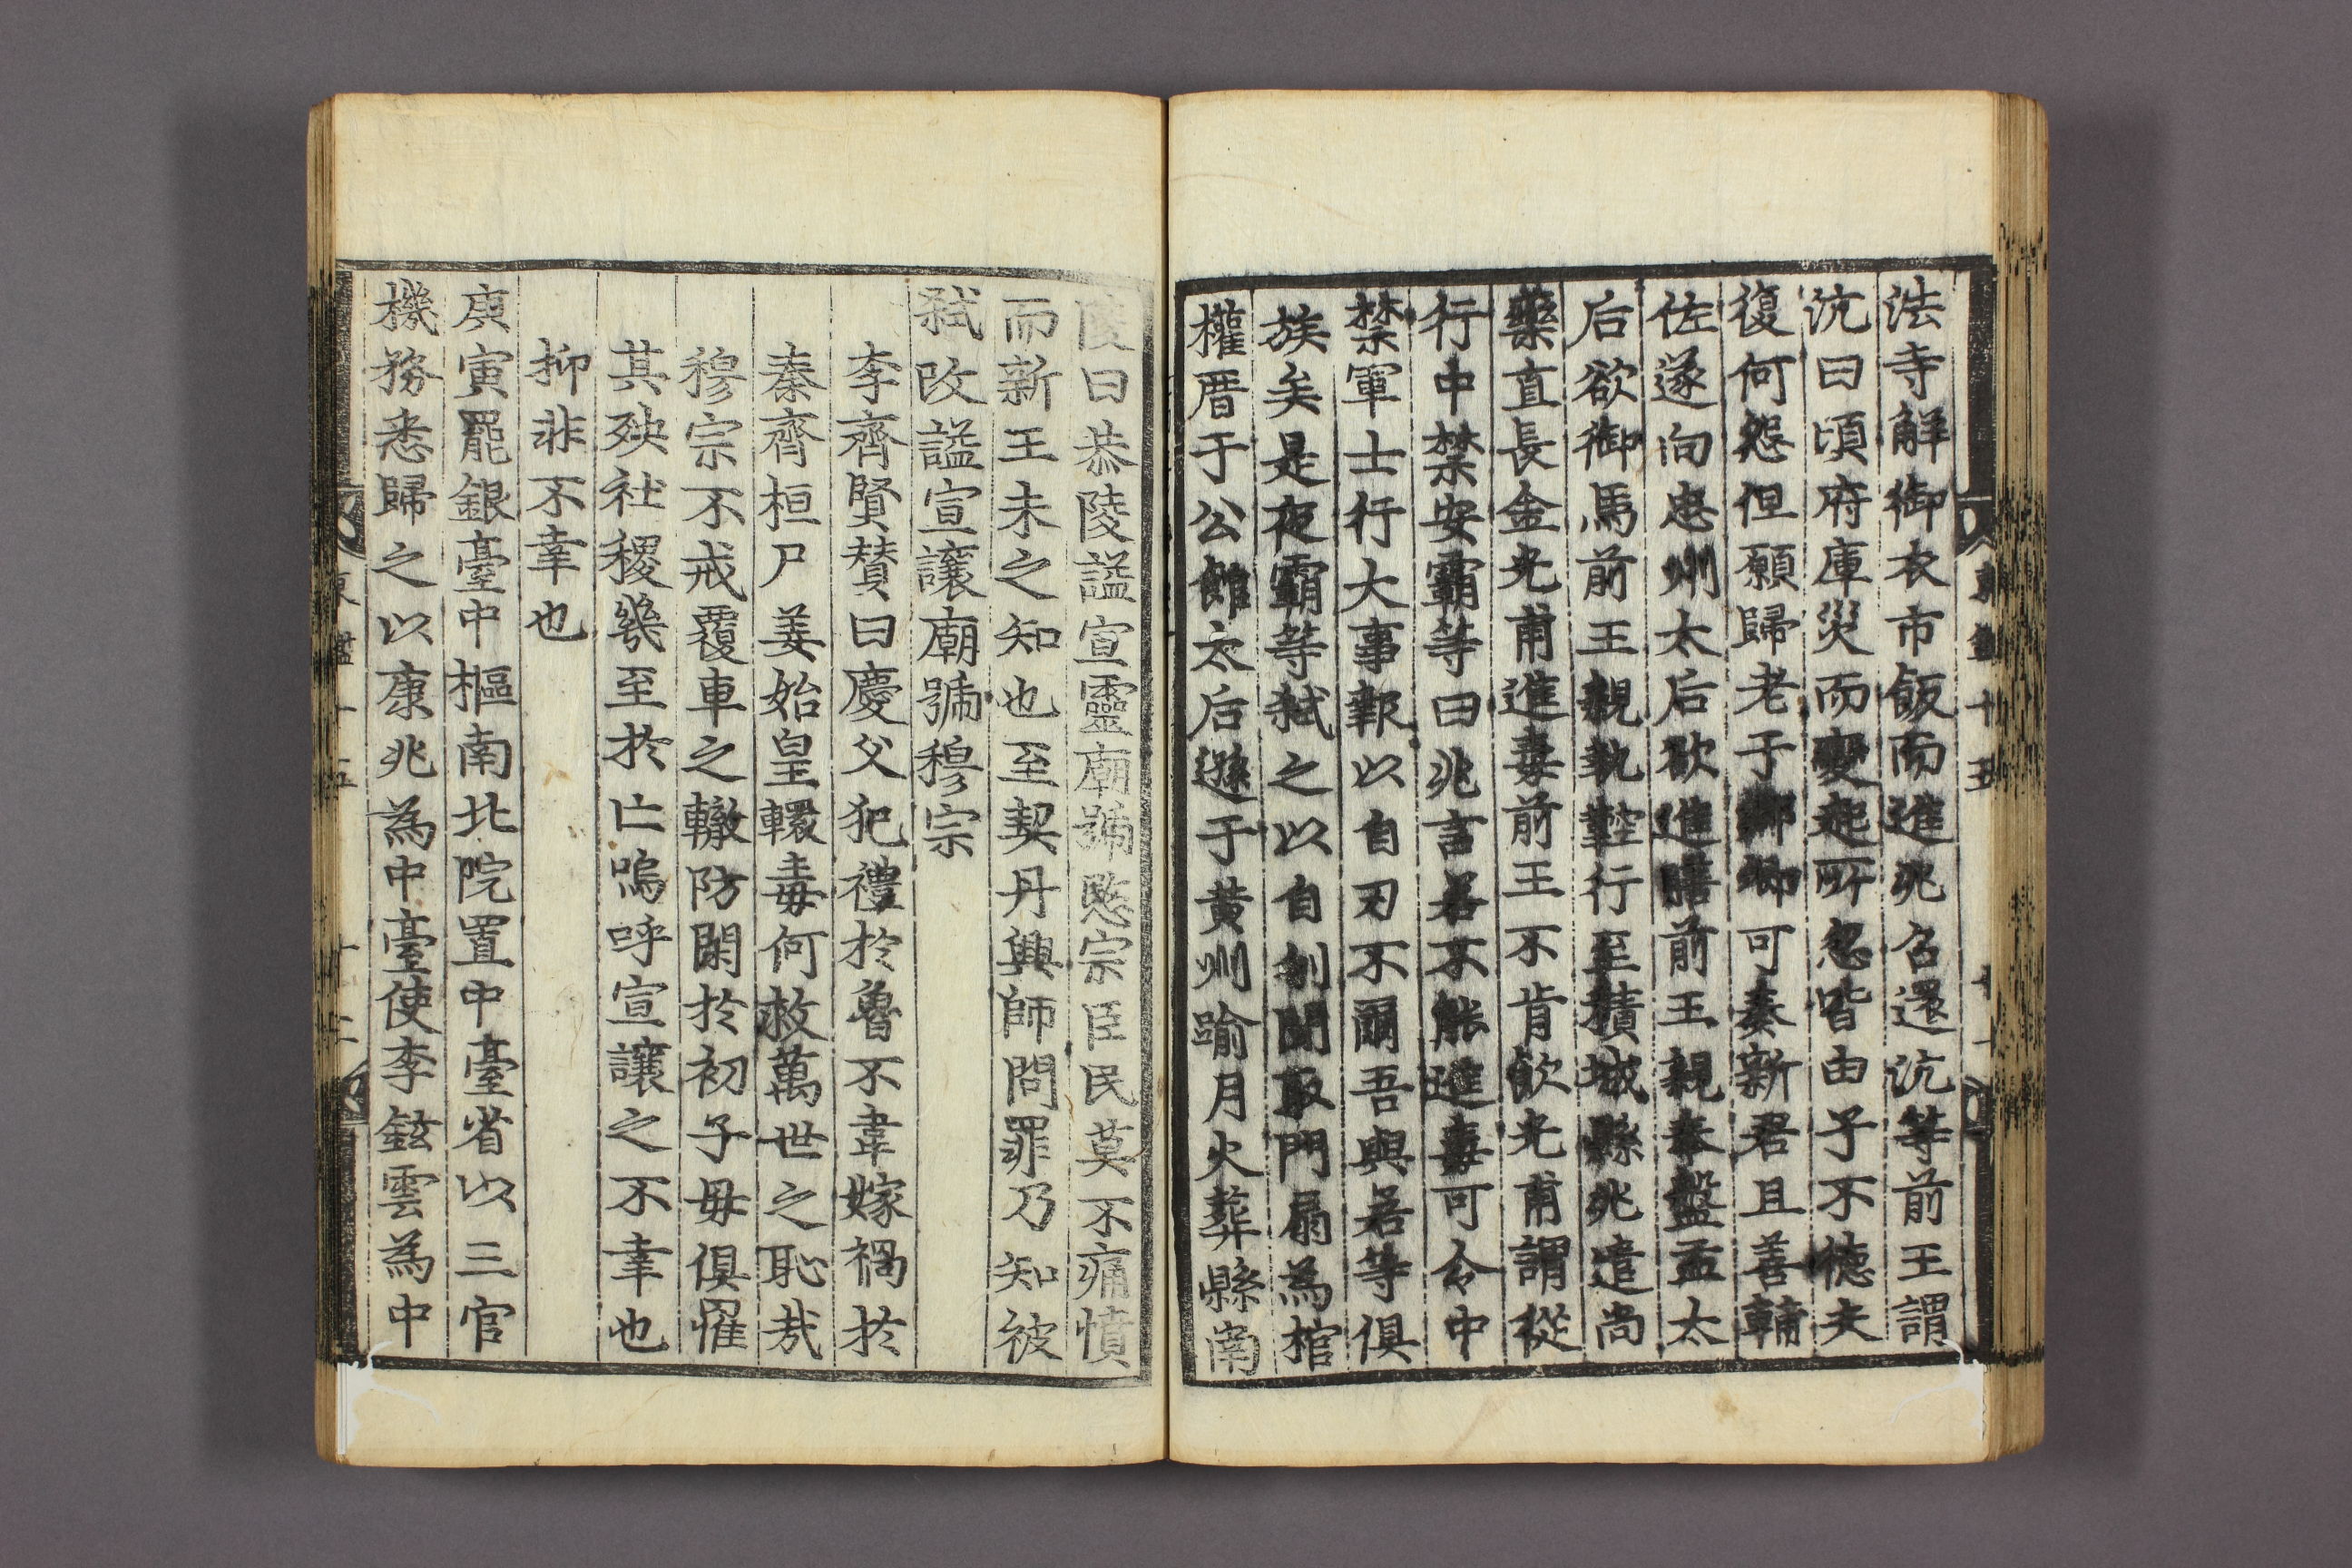 法寺解御衣市飯而進兆召還沆等前王謂
沆曰頃府庫災而變起所忽皆由予不德夫
復何怨但願歸老于鄕卿可奏新君且善輔
佐遂向忠州太后欲進膳前王親奉盤盂太
后欲御馬前王親執鞚行至積城縣兆遣尚
藥直長金光甫進毒前王不肯飮光甫謂從
行中禁安霸等曰兆言若不能進毒可令中
禁軍士行大事報以自刃不爾吾與若等俱
族矣是夜霸等弑之以自刎聞取門扇爲棺
權厝于公館太后遜于黃州踰月火葬縣南
東鑑十五
陵曰恭陵謚宣靈廟號愍宗臣民莫不痛憤
而新王未之知也至契丹興師問罪乃知被
弑改謚宣讓廟號穆宗
李齊賢贊曰慶父犯禮於魯不韋嫁禍於
秦齊桓尸姜始皇轘毒何救萬世之恥哉
穆宗不戒覆車之轍防閑於初子毋俱罹
其殃社稷幾至於亡嗚呼宣讓之不幸也
抑非不幸也
庚寅罷銀臺中樞南北院置中臺省以三官
機務悉歸之以康兆為中臺使李鉉雲為中
東鑑十五 十二